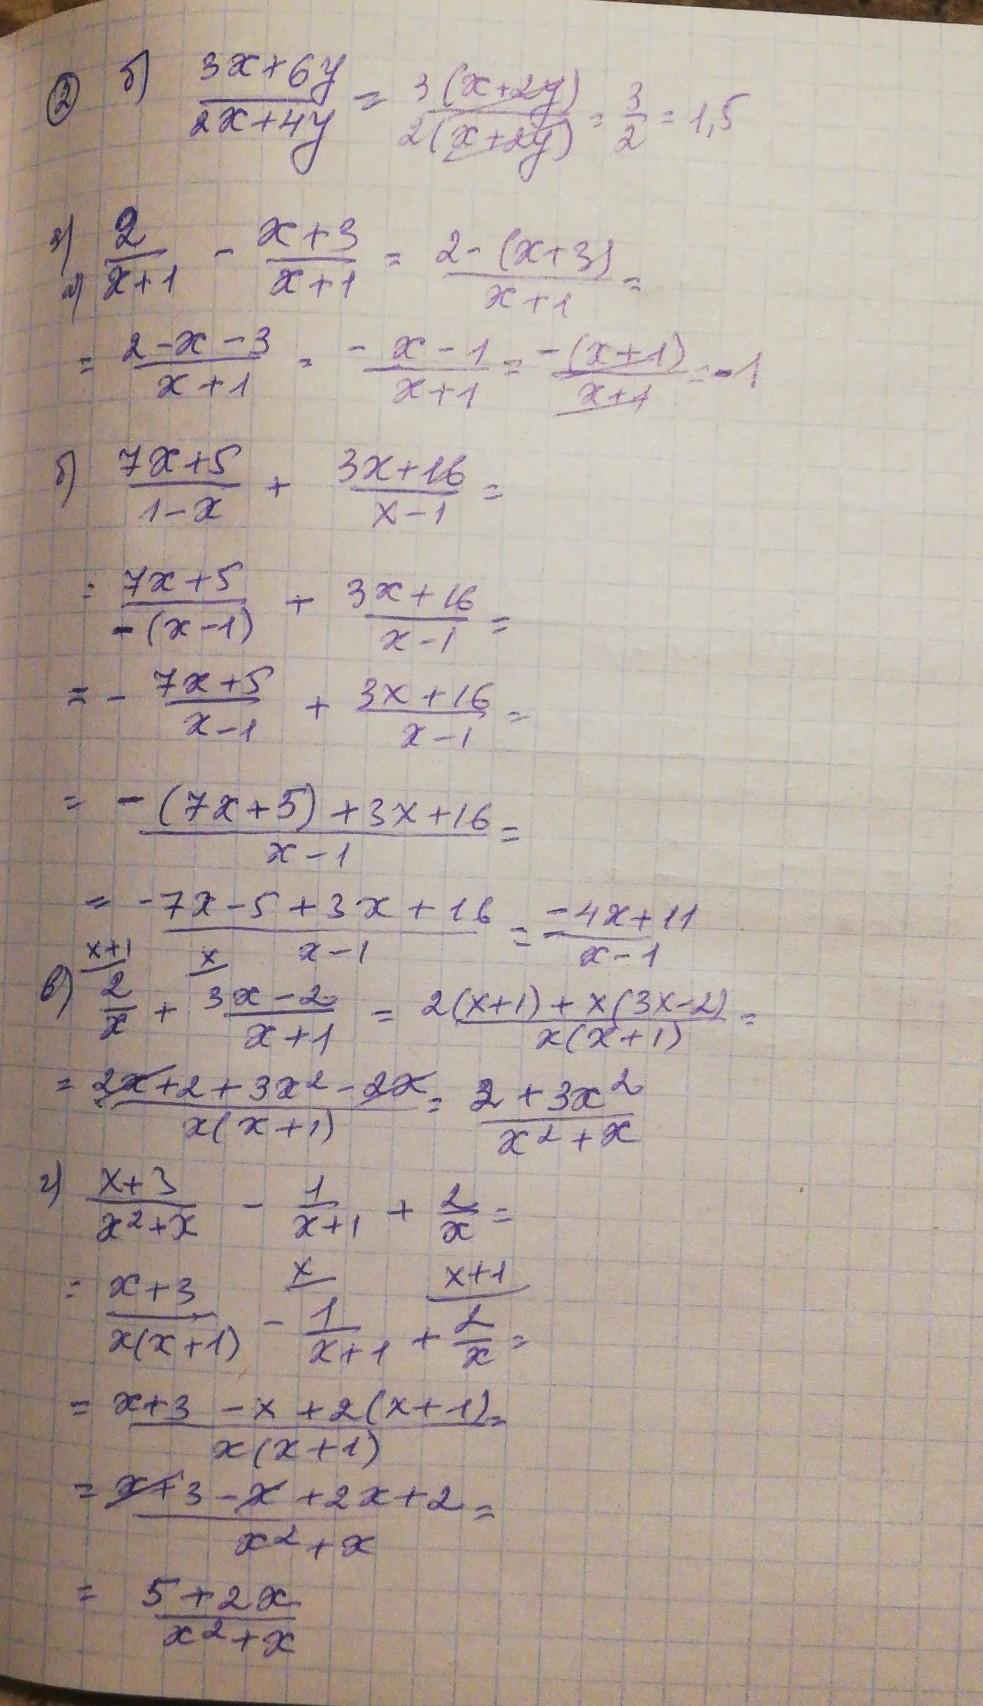 ② б) (3x+6y)/(2x+4y) = 3(x+2y)/2(x+2y) = 3/2 = 1,5
а) 2/(x+1) - (x+3)/(x+1) = (2-(x+3))/(x+1) =
= (2-x-3)/(x+1) = (-x-1)/(x+1) = -(x+1)/(x+1) = -1
б) (7x+5)/(1-x) + (3x+16)/(x-1) =
= (7x+5)/(-(x-1)) + (3x+16)/(x-1) =
= - (7x+5)/(x-1) + (3x+16)/(x-1) =
= (-(7x+5)+3x+16)/(x-1) =
= (-7x-5+3x+16)/(x-1) = (-4x+11)/(x-1)
x+1 x
в) 2/x + (3x-2)/(x+1) = (2(x+1)+x(3x-2))/(x(x+1)) =
= (2x+2+3x²-2x)/(x(x+1)) = (2+3x²)/(x²+x)
г) (x+3)/(x²+x) - 1/(x+1) + 2/x =
x x+1
= (x+3)/(x(x+1)) - 1/(x+1) + 2/x =
= (x+3-x+2(x+1))/(x(x+1)) =
= (x+3-x+2x+2)/(x²+x) =
= (5+2x)/(x²+x)